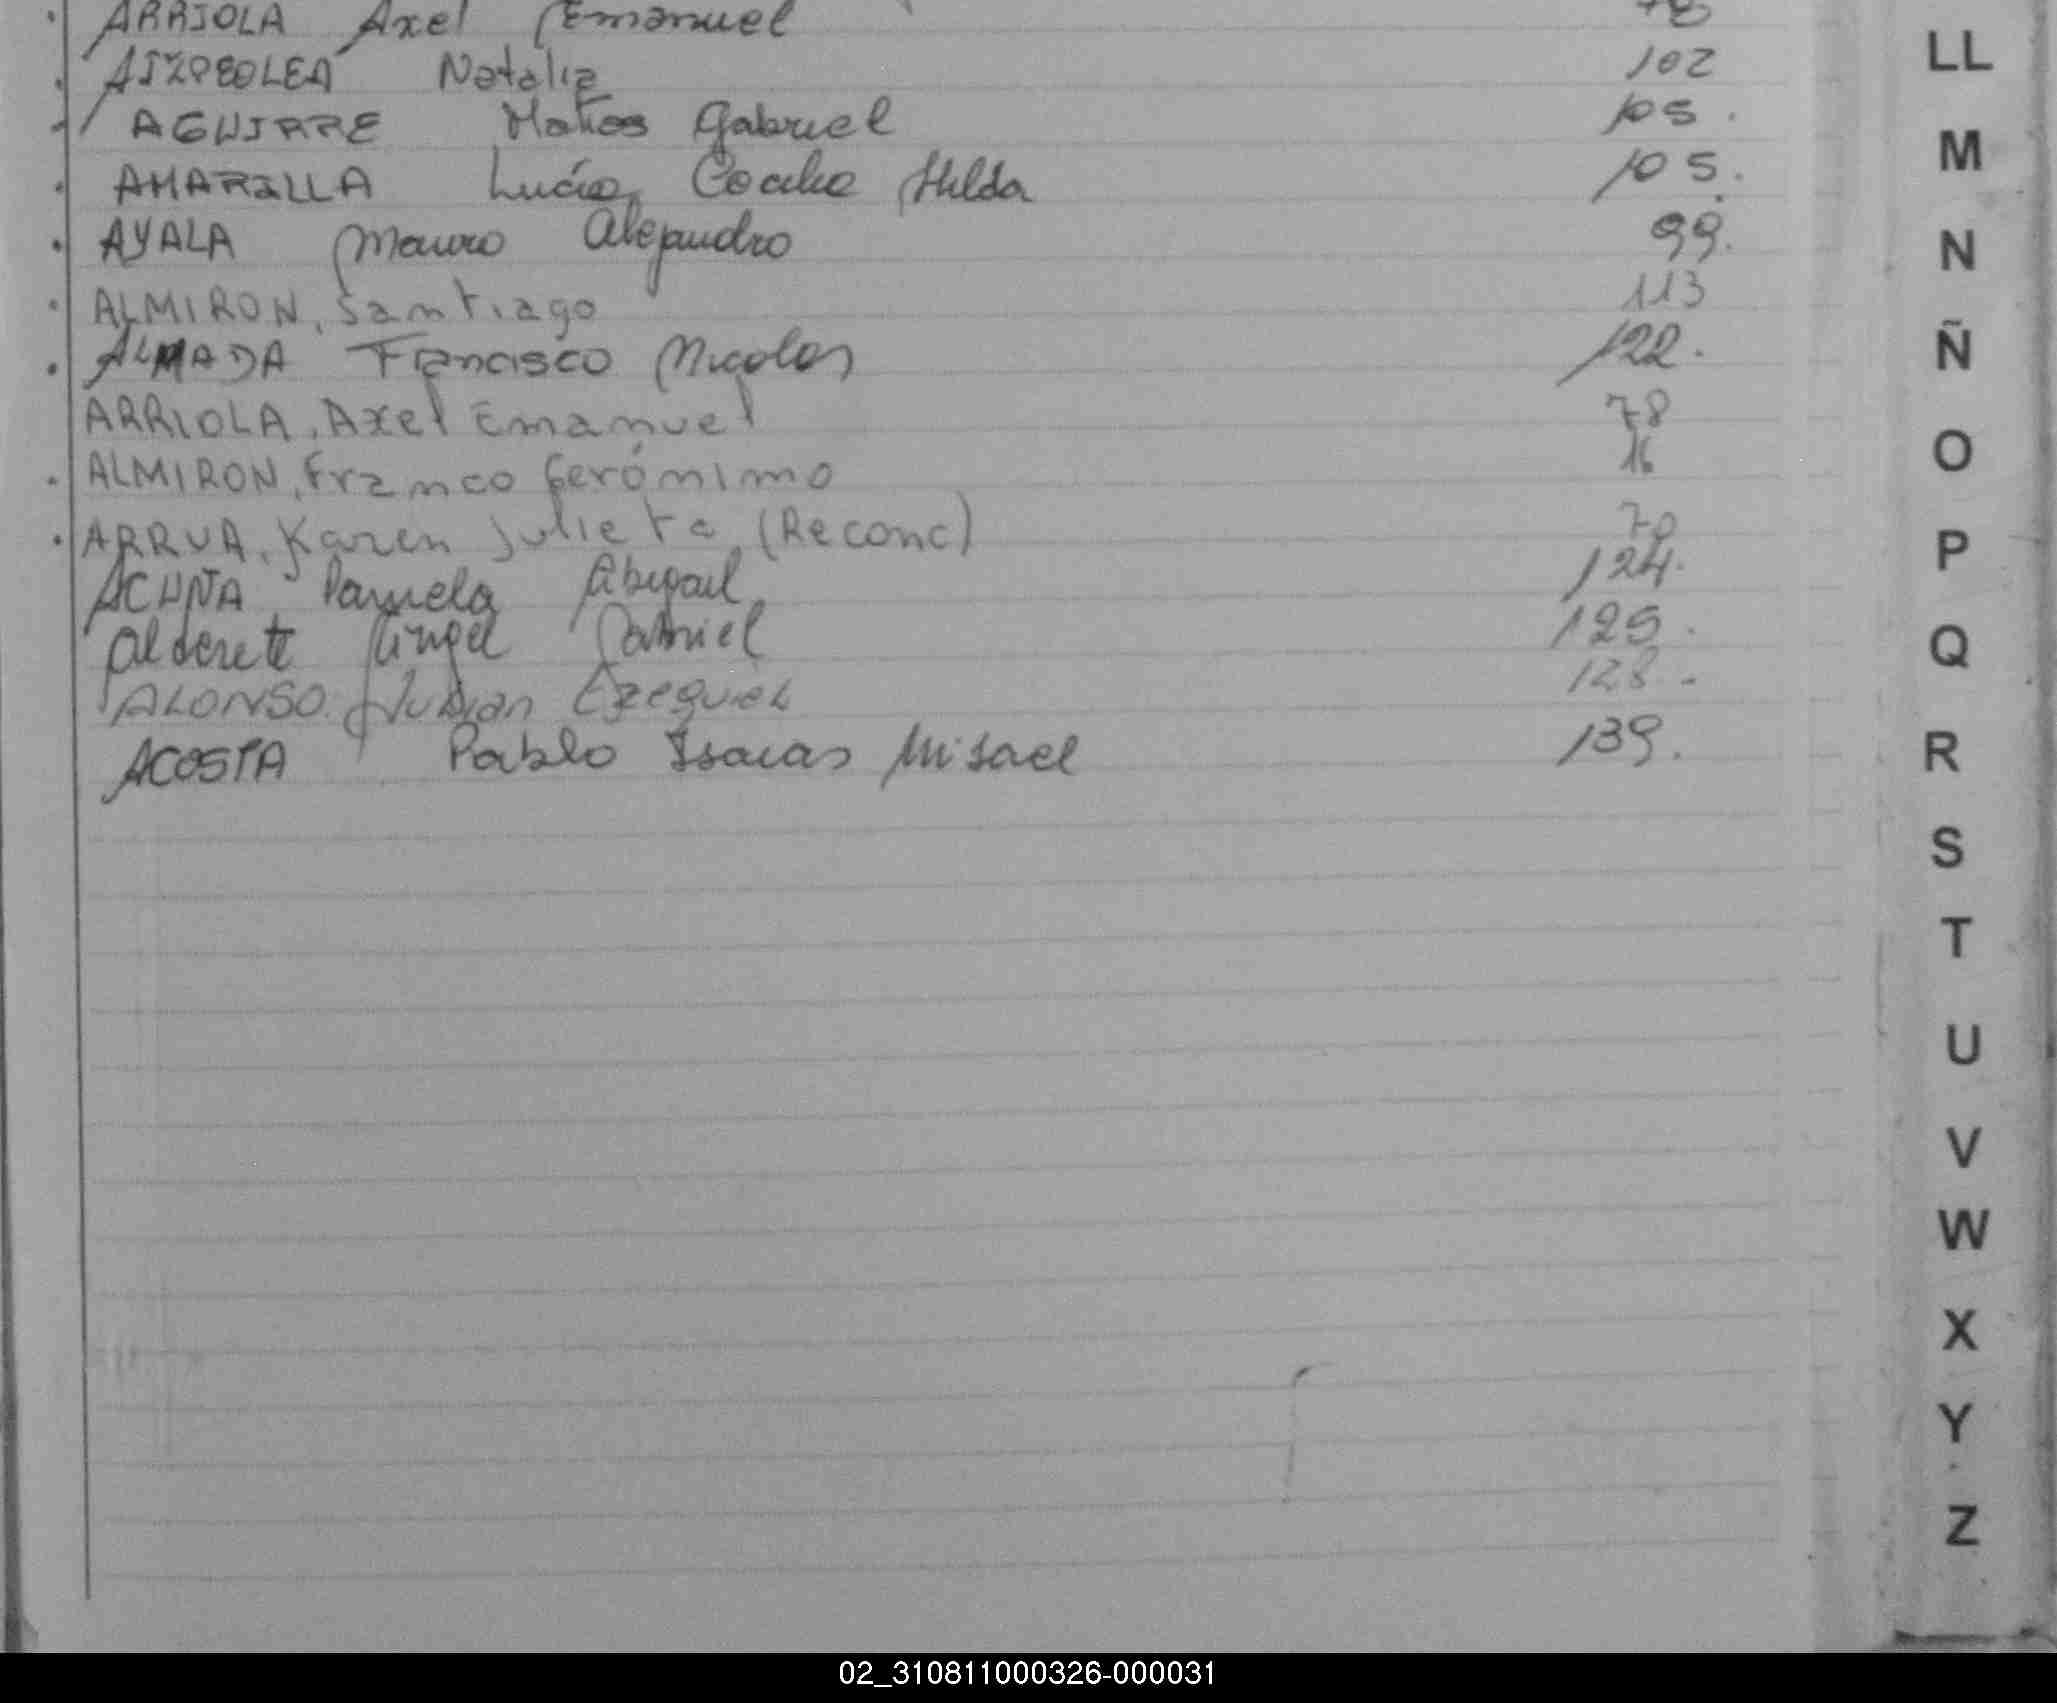 ARRIOLA Axel Emanuel 78
AIZPEOLEA Natalia 102
AGUIRRE Matias Gabriel 105.
AMARILLA Lucia Cecilia Hilda 105.
AYALA Mauro Alejandro 99.
ALMIRON, Santiago 113
ALMADA Francisco Nicolas 122.
ARRIOLA, Axel Emanuel 78
ALMIRON, Franco Gerónimo 16
ARRUA, Karen Julieta (Reconc) 70
ACUÑA Pamela Abigail 124.
Alderete Angel 125.
ALONSO Julian Ezequiel 128.
ACOSTA Pablo Isaias Misael 139.
LL
M
N
Ñ
O
P
Q
R
S
T
U
V
W
X
Y
Z
02_310811000326-000031